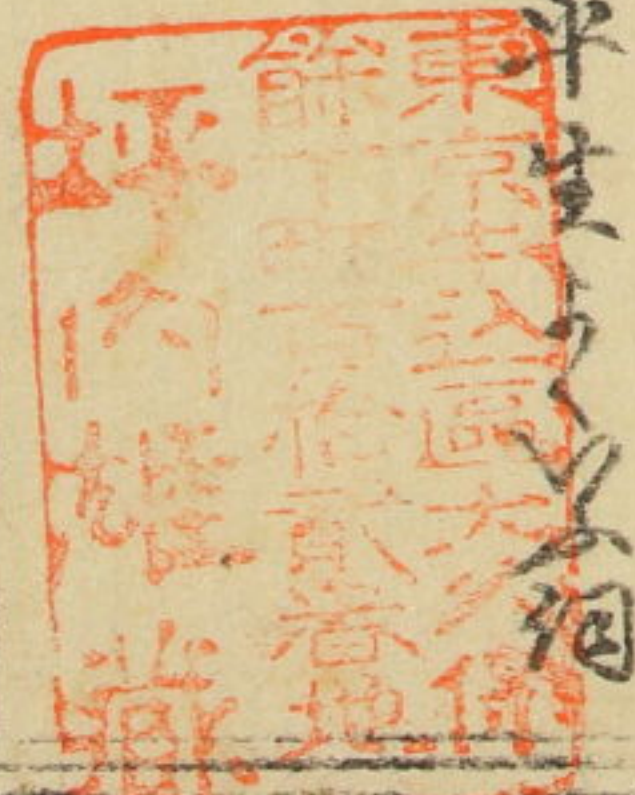 平
東京牛込區大久保
餘丁町百拾貳番地
坪内雄藏